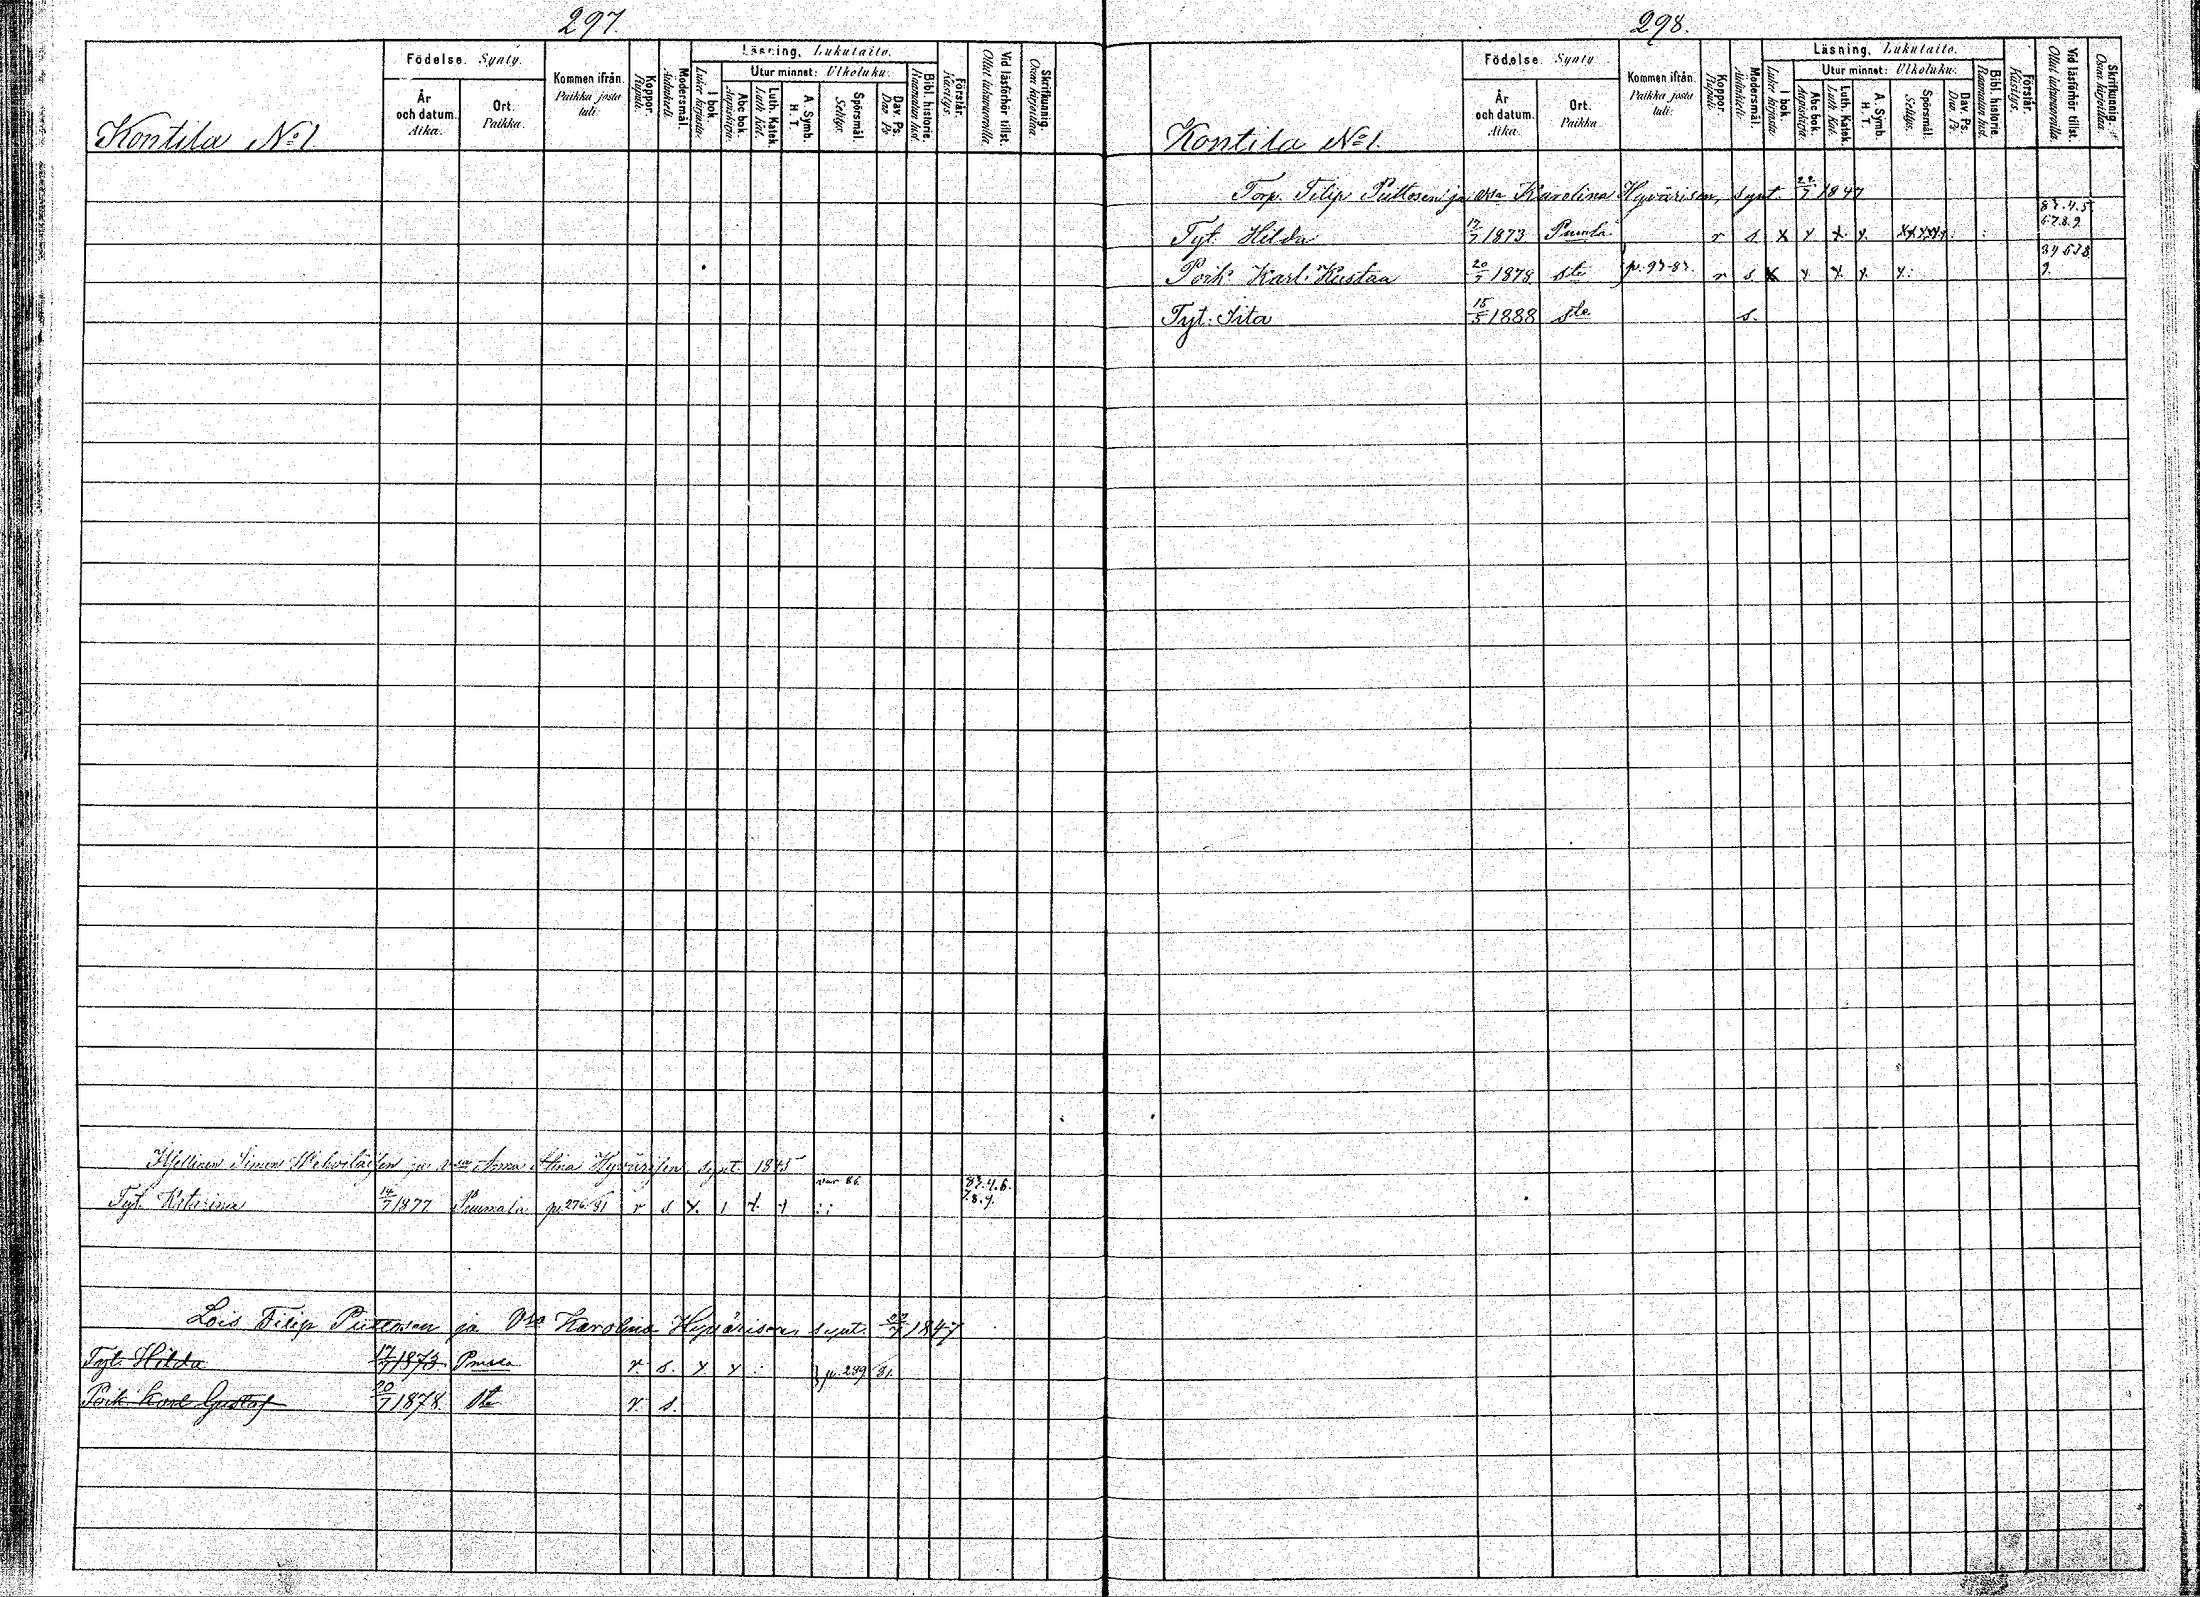 297.
Kontila No 1
Födelse. Synty.
År och datum. Aika.
Ort. Paikka.
Kommen ifrån. Paikka josta tuli.
Koppor. Rupuli.
Modersmål. Äidinkieli.
Läsning, Lukutaito.
I bok. Lukee kirjasta.
Utur minnet: Ulkoluku.
Abc bok. Aapiskirja.
Luth. Katek. Luth. Kat.
A. Symb. H. T.
Spörsmål. Selitys.
Dav. Ps. Dav. Ps
Bibl. historie. Raamatun hist.
Förstår. Käsitys.
Vid läsförhör tillst. Ollut lukuvuorolla.
Skrifkunnig. Osaa kirjoittaa.
Simon ja Anna Hyvärisen, synt. 1845
Tyt. Katarina 14/7 1877 Puumala p. 276/81 r s x. var 86. 83.4.6. 7.8.9.
Lois Filip Puttosen ja Vsa Karolina Hyvärisen synt. 22/7 1847
Tyt. Hilda 17/7 1873. r. s. x x : p. 289/81.
Poik. Karl Gustaf 20/7 1878. r. s.
298.
Kontila No 1.
Födelse. Synty.
År och datum. Aika.
Ort. Paikka.
Kommen ifrån. Paikka josta tuli.
Koppor. Rupuli.
Modersmål. Äidinkieli.
Läsning, Lukutaito.
I bok. Lukee kirjasta.
Utur minnet: Ulkoluku.
Abc bok. Aapiskirja.
Luth. Katek. Luth. Kat.
A. Symb. H. T.
Spörsmål. Selitys.
Dav. Ps. Dav. Ps
Bibl. historie. Raamatun hist.
Förstår. Käsitys.
Vid läsförhör tillst. Ollut lukuvuorolla.
Skrifkunnig. Osaa kirjoittaa.
Torp. Filip Puttosen ja vsa Karolina Hyvärisen, synt. 22/7 1847
Tyt. Hilda 17/7 1873 Puumla r s x x x x 83.4.5. 6.7.8.9.
Poik. Karl Kustaa 20/7 1878 sto p. 97-83. r s. x x x x x: 9.
Tyt. Iita 15/5 1888 sto s.